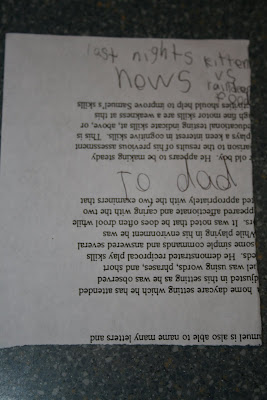 last nights kitten
vs
nows
To dad
muel is also able to name many letters and
home daycare setting which he has attended
djusted in this setting as he was observed
uel was using words, phrases, and short
eds. He demonstrated reciprocal play skills
some simple commands and answered several
While playing in his environment he was
rs. It was noted that he does often drool while
peared affectionate and caring with the two
ted appropriately with the two examiners that
of boy. He appears to be making steady
arison to the results of his previous assessment
plays a keen interest in cognitive skills. This is
educational testing indicate skills at, above, or
gh fine motor skills are a weakness at this
ctivities should help to improve Samuel's skills